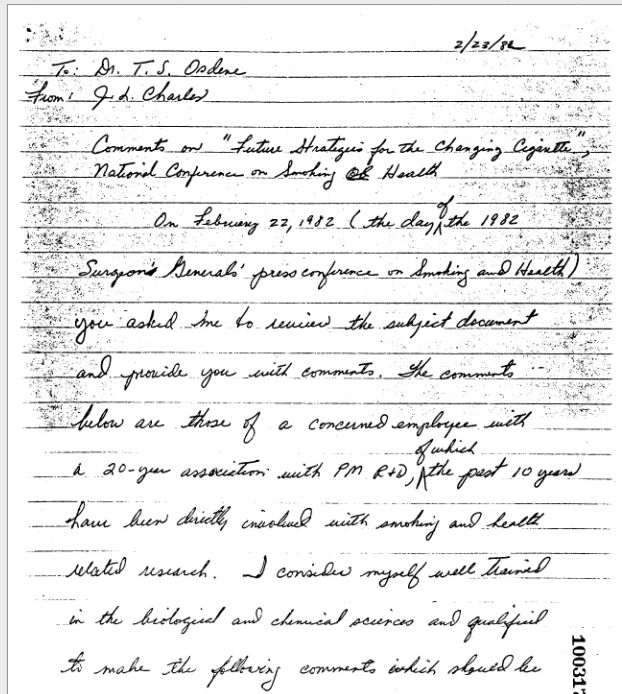 2/23/82
To: Dr. T. S. Osdene
From: J. L. Charles
Comments on "Future Strategies for the Changing Cigarette",
National Conference on Smoking or Health
On February 22, 1982 (the day of the 1982
Surgeon's Generals' press conference on Smoking and Health)
you asked me to review the subject document
and provide you with comments. The comments
below are those of a concerned employee with
a 20-year association with PM R+D, of which the past 10 years
have been directly involved with smoking and health
related research. I consider myself well trained
in the biological and chemical sciences and qualified
to make the following comments which should be
100317